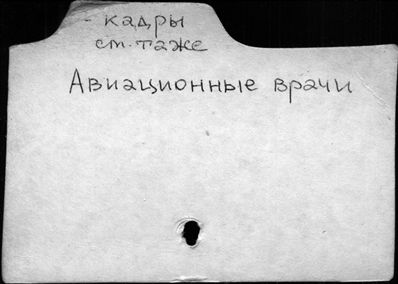 - кадры
см. таже
Авиационные врачи